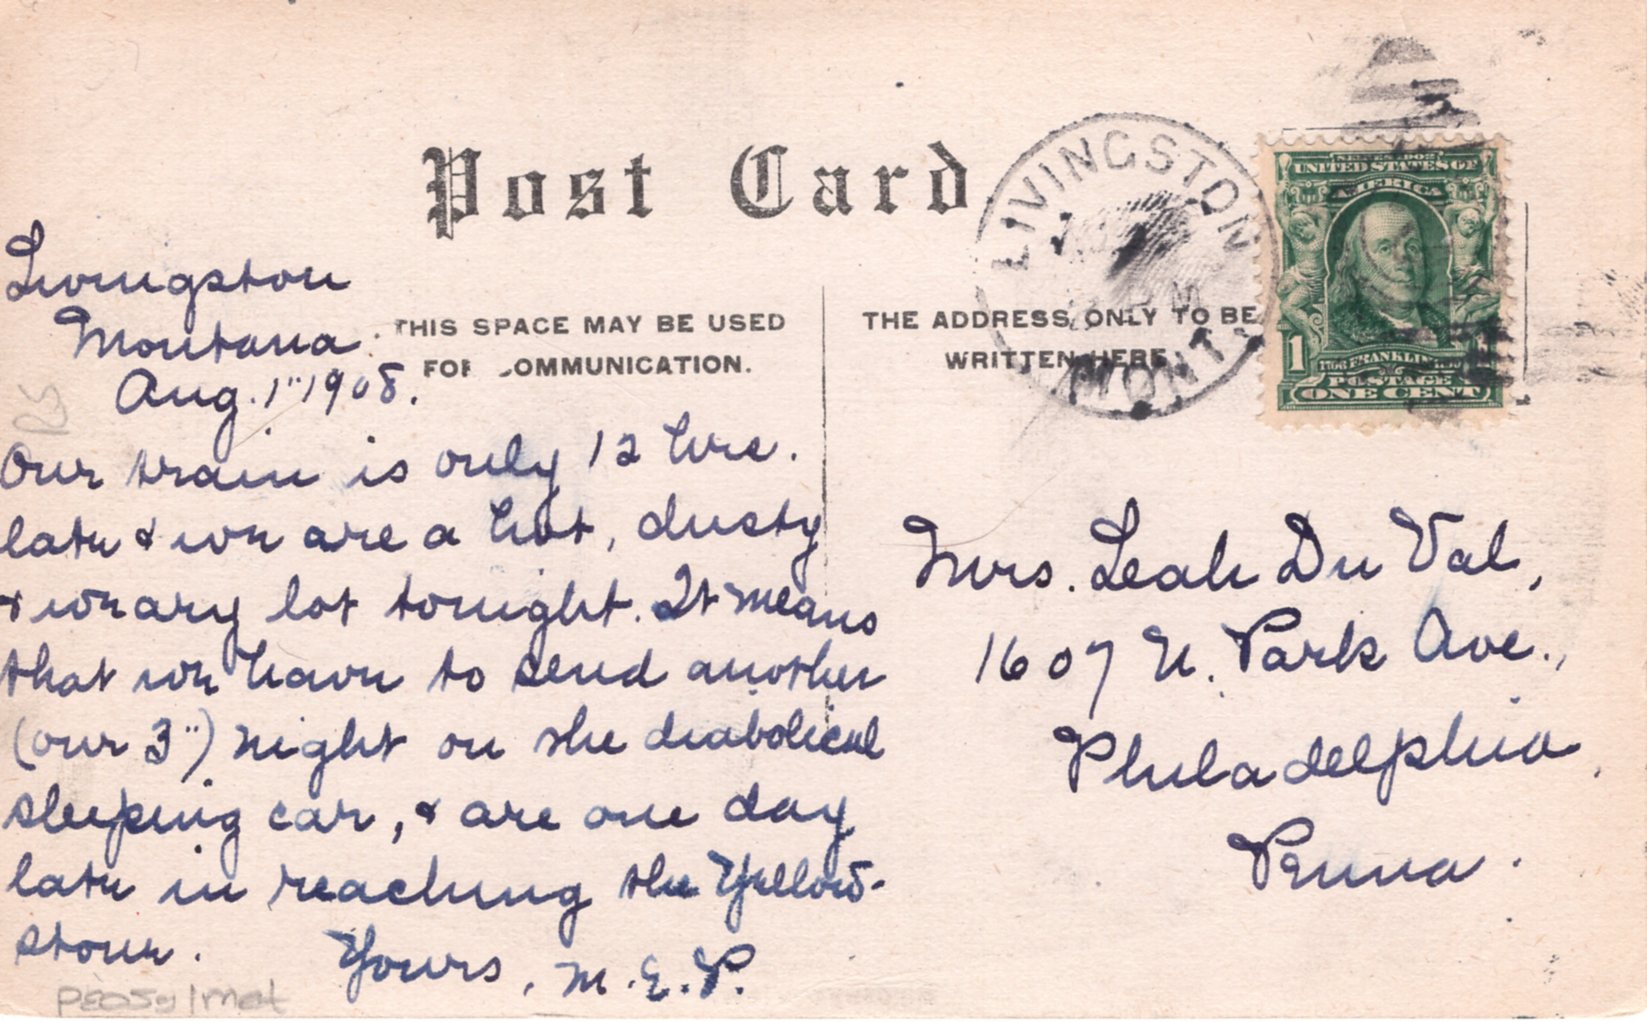 Post Card
THIS SPACE MAY BE USED
FOR COMMUNICATION.
THE ADDRESS ONLY TO BE
WRITTEN HERE
LIVINGSTON
MONT.
SERIES 1902
UNITED STATES OF
AMERICA
1
FRANKLIN
POSTAGE
ONE CENT
Livingston
Montana.
Aug. 1" 1908.
Our train is only 12 hrs.
late & we are a hot, dusty
& weary lot tonight. It means
that we have to send another
(our 3") night on the diabolical
sleeping car, & are one day
late in reaching the Yellow-
stone.
Yours, M.E.P.
Mrs. Leah Du Val,
1607 N. Park Ave.,
Philadelphia,
Penna.